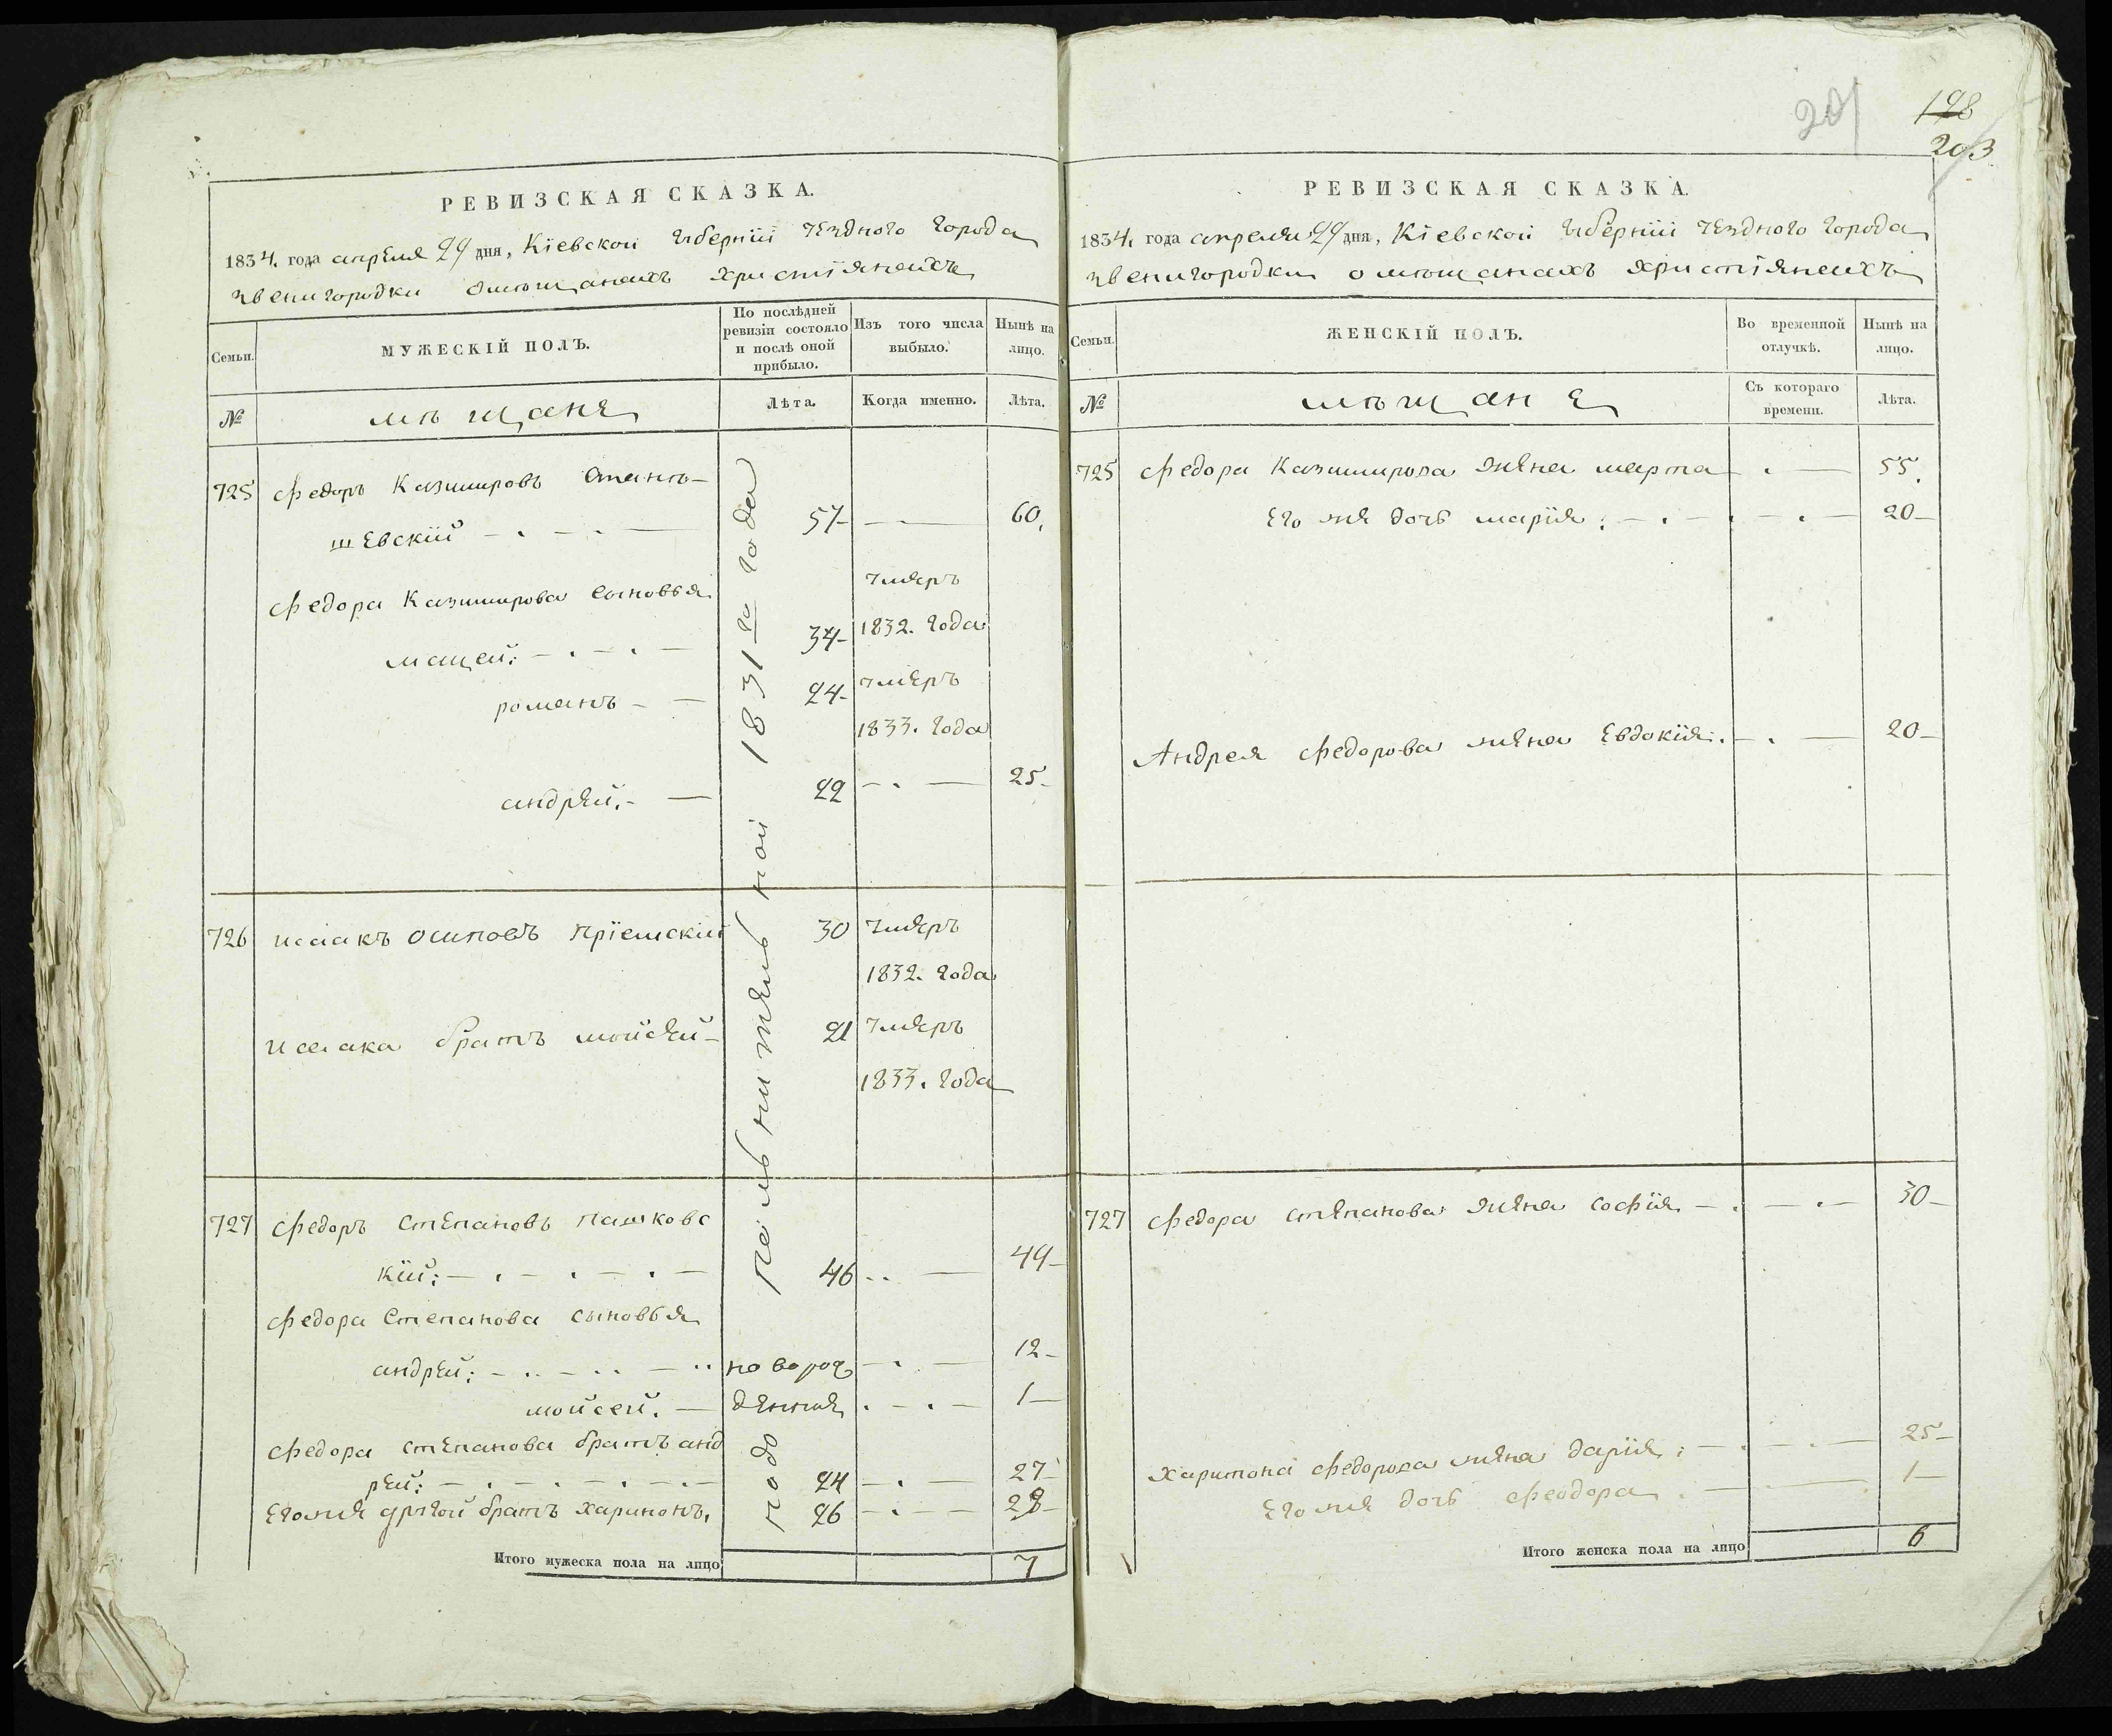 РЕВИЗСКАЯ СКАЗКА.
1834. года апреля 29 дня, Кіевской губерніи уезднаго города
звенигородки о мѣщанахъ христіянахъ
Семьи.
МУЖЕСКІЙ ПОЛЪ.
По послѣдней ревизіи состояло и послѣ оной прибыло.
Изъ того числа выбыло.
Нынѣ на лицо.
№
мѣщане
Лѣта.
Когда именно.
Лѣта.
по дополнительной 1831 го года
725 федоръ Казимировъ
шевскій 57 60.
федора Казимирова сыновья
мацей: 34 умеръ 1832. года
романъ 24 умеръ 1833. года
андрей. 22 25
726 исаакъ осиповъ 30 умеръ
1832. года
исаака братъ мойсей 21 умеръ
1833. года
727 федоръ степановъ пашковс
кій: 46 49
федора степанова сыновья
андрей: новорож 12
мойсей. денния 1
федора степанова братъ анд
рей: 24 27
его же другой братъ харитонъ. 26 29
Итого мужеска пола на лицо 7
201
198
203
РЕВИЗСКАЯ СКАЗКА.
1834. года апреля 29 дня, Кіевской губерніи уезднаго города
звенигородки о мѣщанахъ христіянахъ
Семьи.
ЖЕНСКІЙ ПОЛЪ.
Во временной отлучкѣ.
Нынѣ на лицо.
№
мѣщане
Съ котораго времени.
Лѣта.
725 федора Казимирова жена марта 55.
его же дочь марія: 20
Андрея федорова жена Евдокія: 20
727 федора степанова жена софія 30
харитона федорова жена дарія: 25
его же дочь феодора 1
Итого женска пола на лицо 6